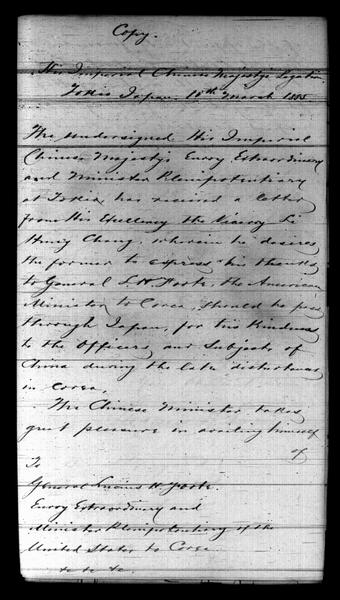 Copy.
His Imperial Chinese Majesty's Legation
Tokio Japan. 10th March 1885
The undersigned His Imperial
Chinese Majesty's Envoy Extraordinary
and Minister Plenipotentiary
at Tokio has received a letter
from His Excellency the Viceroy Li
Hung Chang, wherein he desires
the former to express his thanks
to General L. H. Foote, the American
Minister to Corea, should he pass
through Japan, for his kindness
to the Officers and Subjects of
China during the late disturbances
in Corea.
The Chinese Minister takes
great pleasure in availing himself
of
To
General Lucius H. Foote.
Envoy Extraordinary and
Minister Plenipotentiary of the
United States to Corea
&c &c &c.